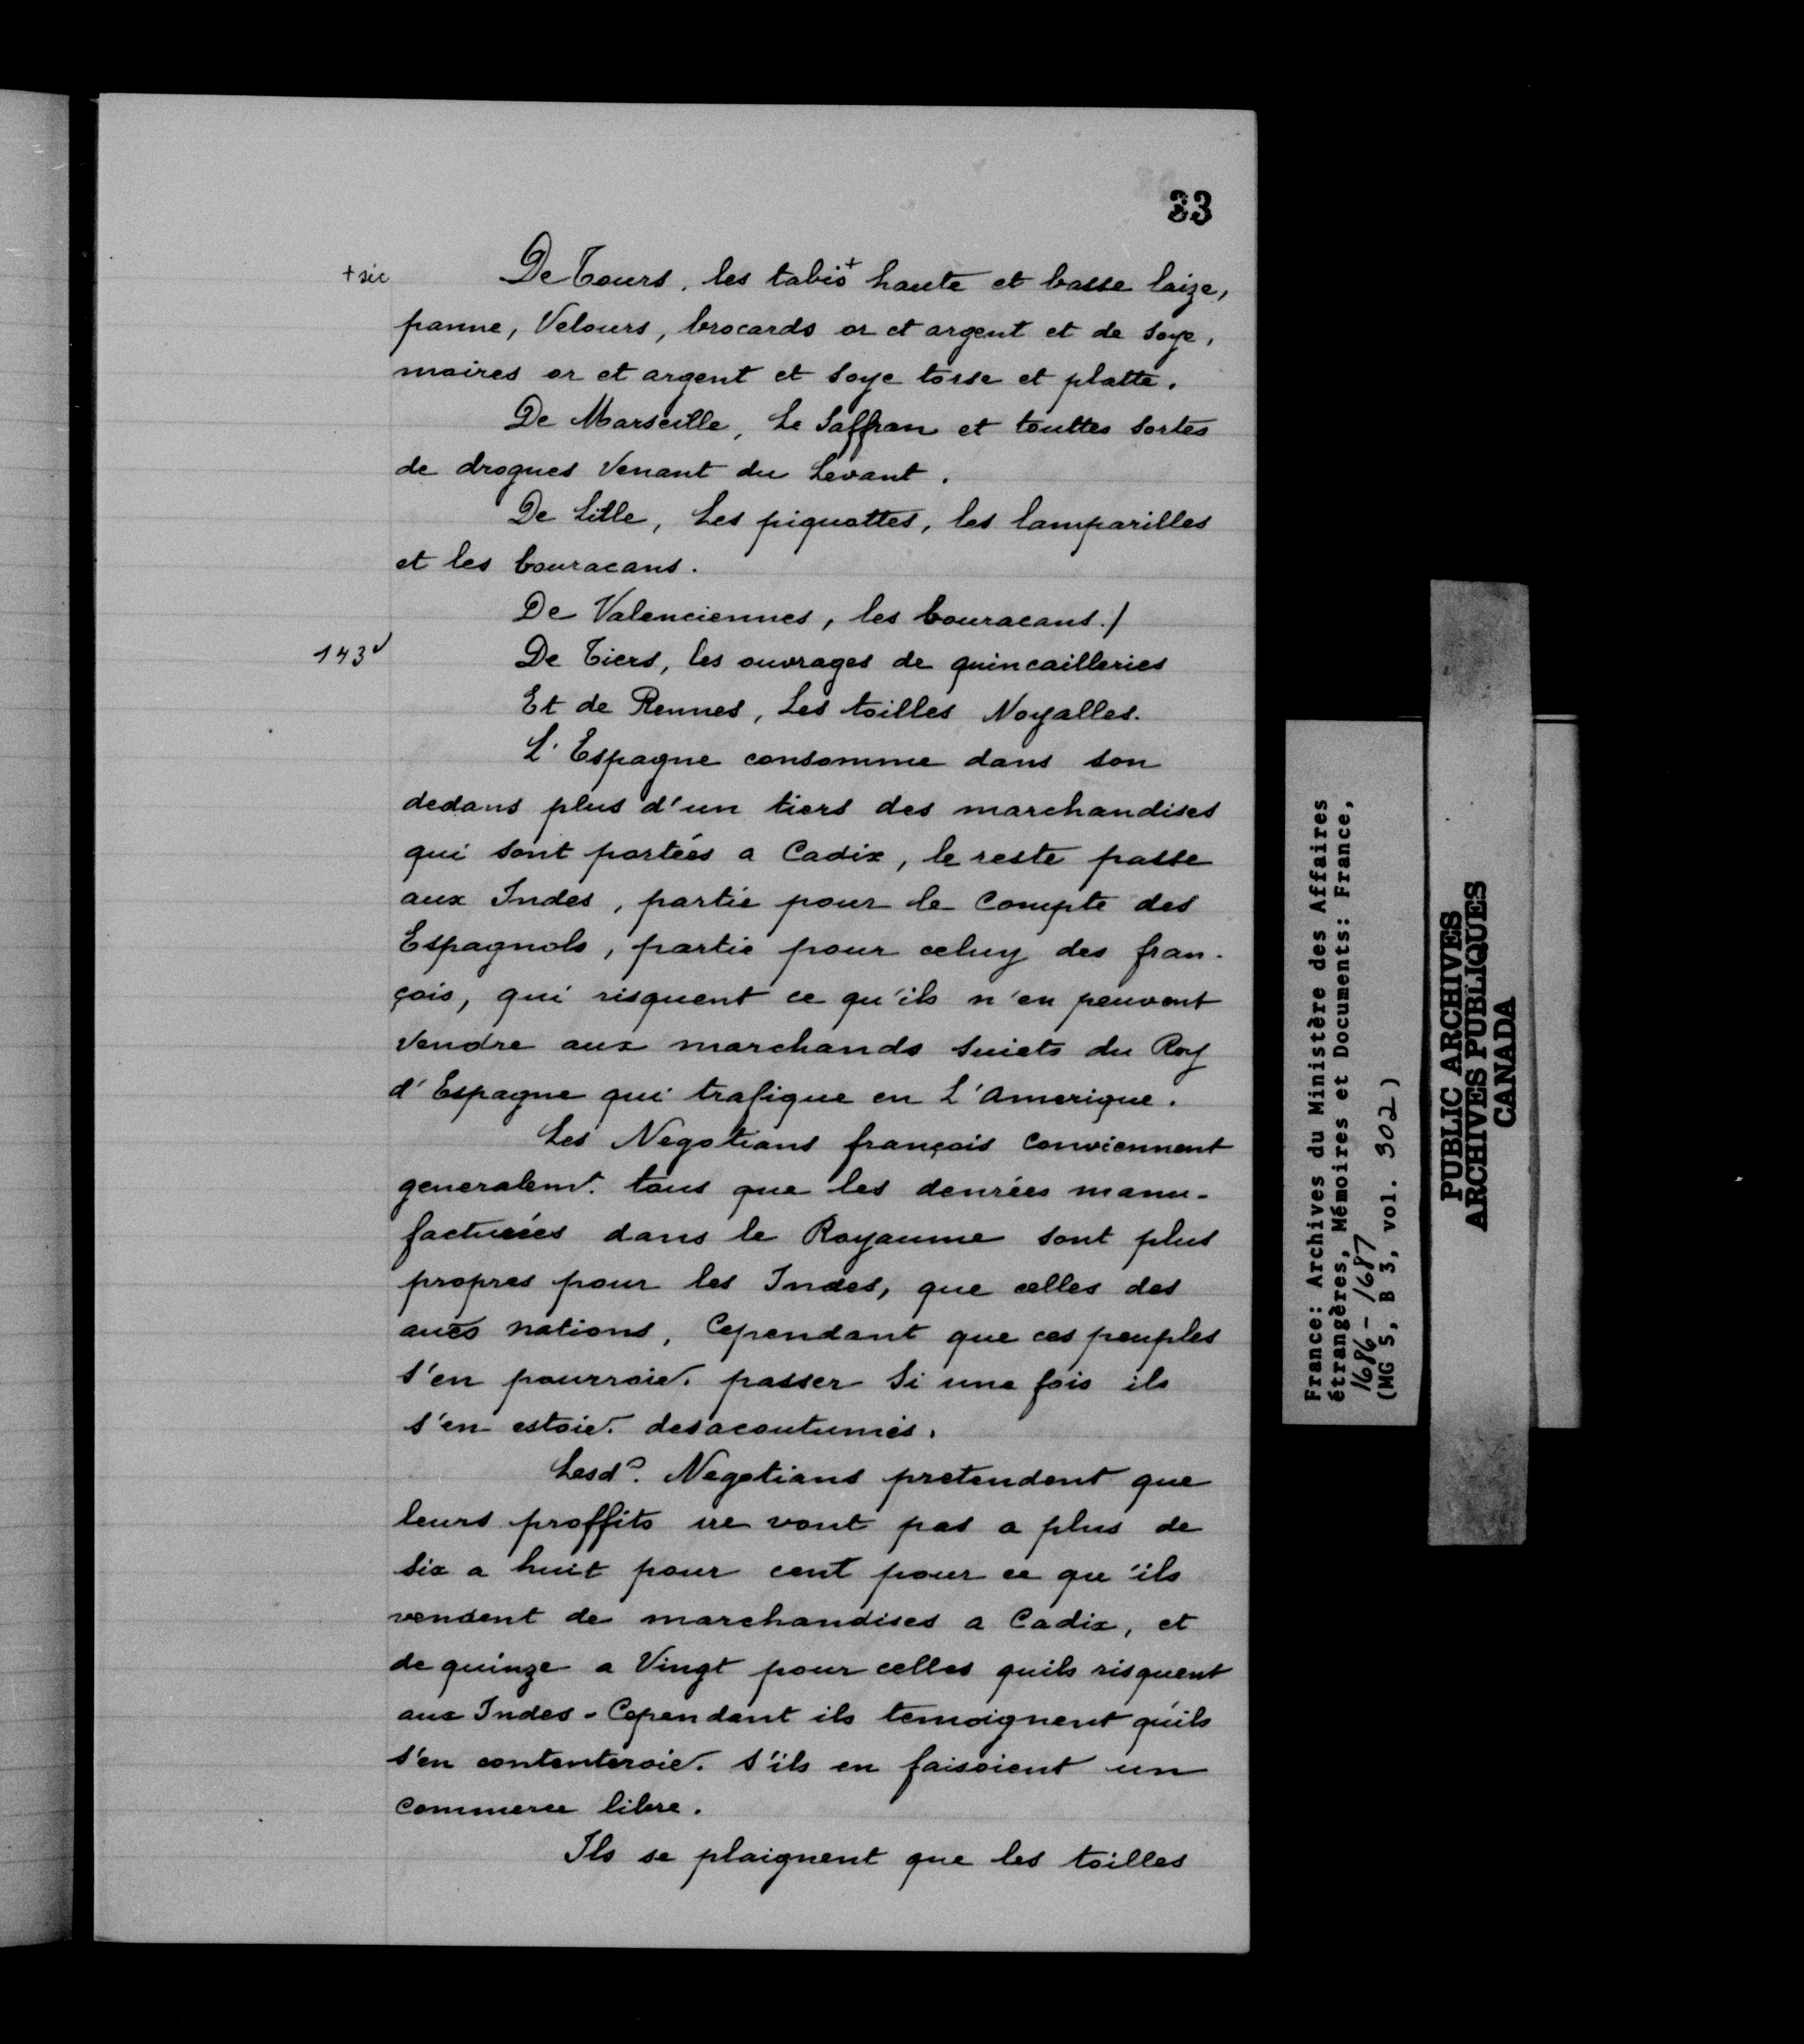 33
+ sic
De Tours, les tabis+ haute et basse laize,
panne, Velours, brocards or et argent et de soye,
moires or et argent et soye torse et platte.
De Marseille, Le Saffran et touttes sortes
de drogues Venant du Levant.
De Lille, Les piquottes, les lamparilles
et les bouracans.
De Valenciennes, les bouracans./
143v
De Tiers, les ouvrages de quincailleries
Et de Rennes, Les toilles Noyalles.
L'Espagne consomme dans son
dedans plus d'un tiers des marchandises
qui sont portées a Cadix, le reste passe
aux Indes, partie pour le Compte des
Espagnols, partie pour celuy des fran-
çois, qui risquent ce qu'ils n'en peuvent
Vendre aux marchands suiets du Roy
d'Espagne qui trafique en L'amerique.
Les Negotians françois conviennent
generalemt. tous que les denrées manu-
facturées dans le Royaume sont plus
propres pour les Indes, que celles des
aues nations, Cependant que ces peuples
s'en pourroit. passer Si une fois ils
s'en estoit. desacoutumés.
Lesds. Negotians pretendent que
leurs proffits ne vont pas a plus de
six a huit pour cent pour ce qu'ils
vendent de marchandises a Cadix, et
de quinze a Vingt pour celles quils risquent
aux Indes - Cependant ils temoignent qu'ils
s'en contenteroit. s'ils en faisoient un
commerce libre.
Ils se plaignent que les toilles
France: Archives du Ministère des Affaires
étrangères, Mémoires et Documents: France,
1686 - 1687
(MG 5, B 3, vol. 302)
PUBLIC ARCHIVES
ARCHIVES PUBLIQUES
CANADA